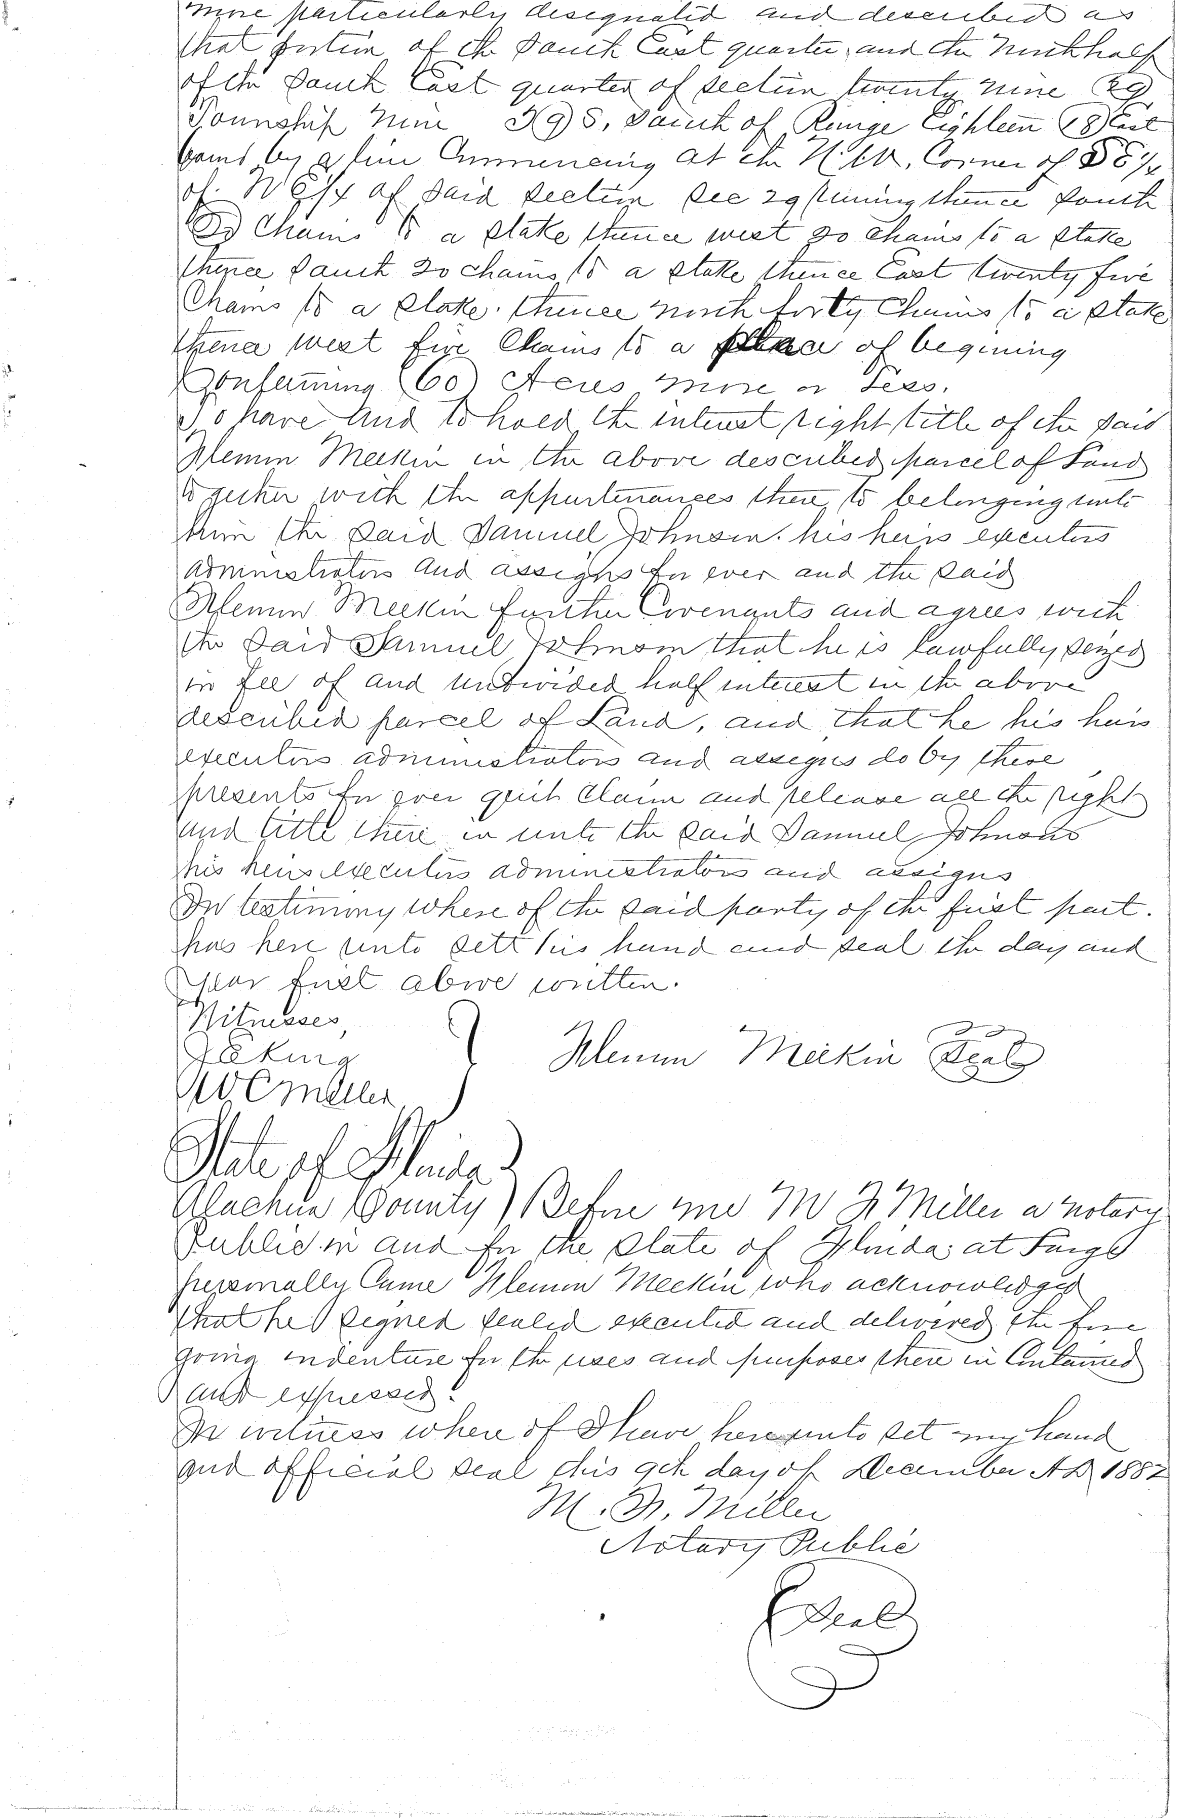 more particularly designated and described as
that portion of the South East quarter, and the North half
of the South East quarter of section twenty nine (29)
Township Nine 9 S, South of Range Eighteen (18) East
by a line Commencing at the N.W. Corner of SE 1/4
of NE 1/4 of said section sec 29 running thence South
20 Chains to a stake thence west 20 chains to a stake
thence South 20 chains to a stake thence East twenty five
Chains to a stake. thence north forty Chains to a stake
thence west five Chains to a place of begining
Containing (60) Acres more or Less.
To have and to hold the interest right title of the said
Flemin Meekin in the above described parcel of Land
to gether with the appurtenances there to belonging unto
him the said Samuel Johnson. his heirs executors
administrators and assigns for ever and the said
Flemin Meekin further Covenants and agrees with
the said Samuel Johnson that he is lawfully seized
in fee of and undivided half interest in the above
described parcel of Land, and that he his heirs
executors administrators and assigns do by these
presents for ever quit Claim and release all the right
and title there in unto the said Samuel Johnson
his heirs executors administrators and assigns
In testimony where of the said party of the first part.
has here unto sett his hand and seal the day and
year first above written.
Witnesses
King
W C Miller
Flemin Meekin Seal
State of Florida
Alachua County) Before me M F Miller a notary
Public in and for the State of Florida at Large
personally Came Flemin Meekin who acknowledged
that he signed sealed executed and delivered the fore
going indenture for the uses and purposes there in Contained
and expressed.
In witness where of I have here unto set my hand
and official seal this 9th day of December AD 1882
M. F. Miller
Notary Public
Seal